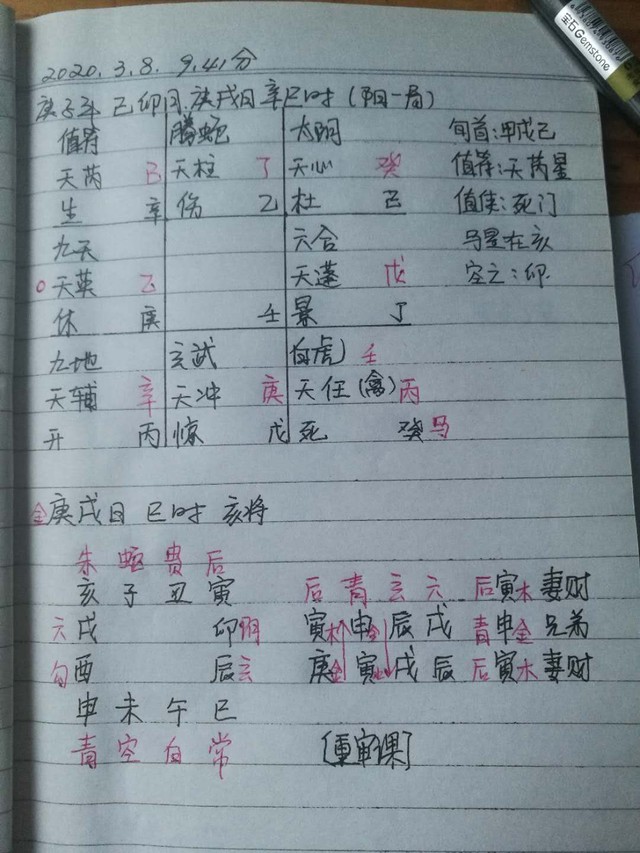 宝石Gemstone
2020.3.8. 9.41分
庚子年 己卯月.庚戌日 辛巳时 (阳一局)
值符 腾蛇 太阴 旬首:甲戌己
天芮 己 天柱 丁 天心 癸 值符:天芮星
生 辛 伤 乙 杜 己 值使:死门
九天 六合 马星在亥
○天英 乙 天蓬 戊 空亡:卯
休 庚 壬 景 丁
九地 玄武 白虎 壬
天辅 辛 天冲 庚 天任(禽)丙
开 丙 惊 戊 死 癸马
金庚戌日 巳时 亥将
朱 蛇 贵 后
亥 子 丑 寅 后 青 玄 六 后寅木妻财
六戌 卯阴 寅木 申金 辰 戌 青申金兄弟
勾酉 辰玄 庚金 寅木 戌 辰 后寅木妻财
申 未 午 巳
青 空 白 常 [重审课]